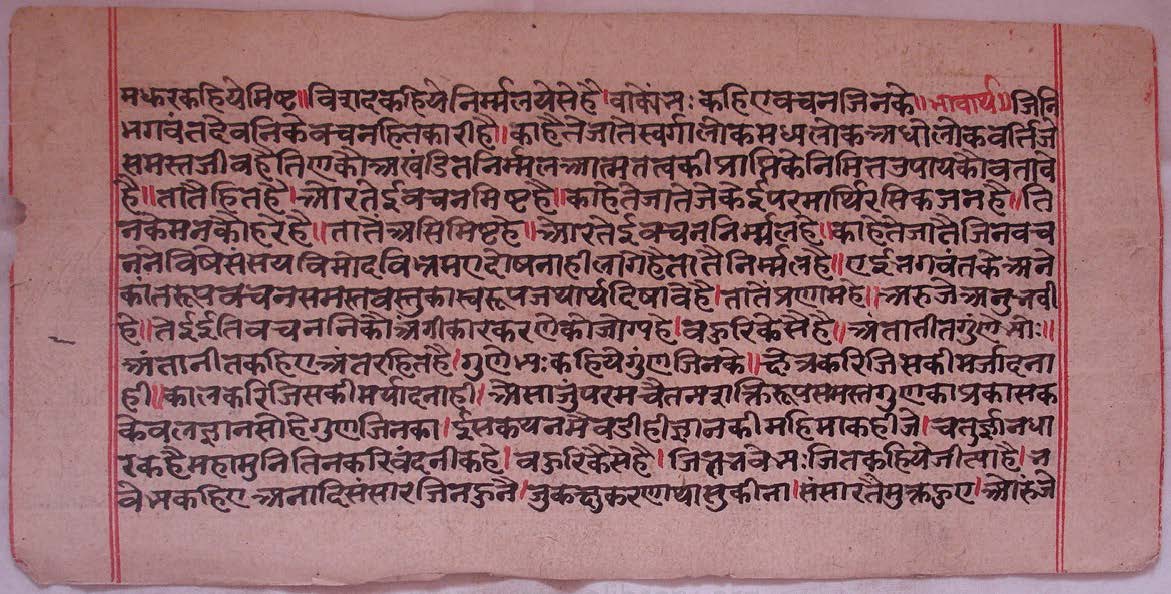 मधुरकहियेमिष्ट॥विशदकहियेनिर्म्मलयेसेहै।वाकोंभः कहिएवचनजिनके॥भावार्थ॥जिनि
भगवंतदेवनिकेवचनहितकारीहै॥काहैतेजातेस्वर्गालोकमध्यलोकअधोलोकवर्तिजे
समस्तजीवहैतिएकौअखंडितनिर्म्मलआत्मतत्वकीप्राप्तिकेनिमित्तउपायकौवतावे
है॥तातैहितहै।औरतेईवचनमिष्टहै॥काहेतैजातेजेकेईपरमार्थिरसिकजनहै॥ति
नकेमनकौहरेहै॥तातेंअसिमिष्टहै॥औरतेईवचननिर्म्मलहै।काहेतैजातैजिनवच
ननेविषैसंसयविमोहविभ्रमएदोषनाहीलागेहैतातैनिर्म्मलहै॥एईभगवंतकेअने
कांतरूपवचनसमस्तवस्तुकास्वरूपजथार्थदिषावेहै।तातेंप्रणामहै॥अरुजेअनुभवी
है॥तेईईतिवचननिकौअंगीकारकरणेकौजोग्पहै।वहुरिकैसेहै॥अंतातीतगुंणेभ्यः॥
अंतातीतकहिएअंतरहितहै।गुणेभ्यः कहियेगुंणजिनके॥क्षेत्रकरिजिसकीमर्जादना
ही॥कालकरिजिसकीमर्यादनाही।ऐसाजुंपरमचैतन्यशक्तिरूपसमस्तगुणकाप्रकासक
केवलज्ञानसोहैगुणजिनका।ईसकथनमैवडीहीज्ञानकीमहिमाकहीजे।चतुर्ज्ञानधा
रकहैमहामुनितिनकरिवंदनीकहै।वहुरिकैसेहै।जितभवेभ्यःजितकहियेजीत्याहै।भ
वेभ्यकहिएअनादिसंसारजिनहुनै।जुकछुकरणाथासुकीना।संसारतैमुक्तहुए।औरजे